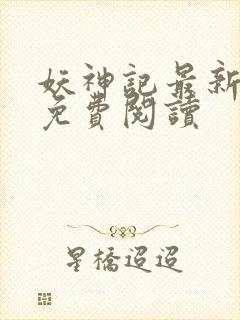 妖神記最新
免費閱讀
星橋迢迢